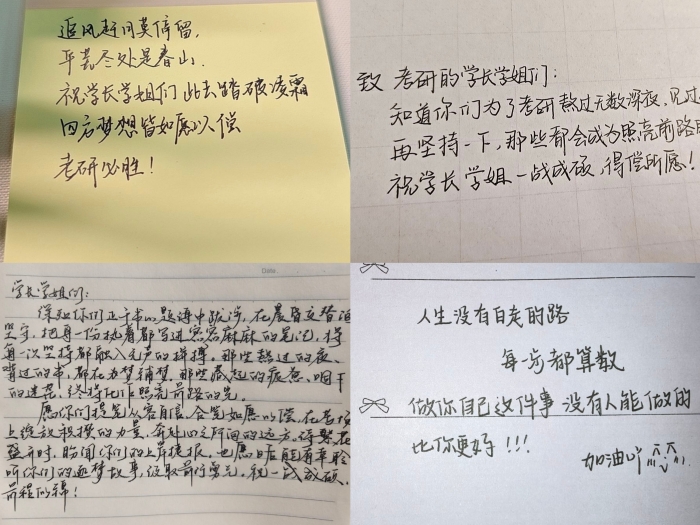 追风赶月莫停留，
平芜尽处是春山.
祝学长学姐们 此去踏破凌霜
四方梦想皆如愿以偿
考研必胜！
致 考研的学长学姐们：
知道你们为了考研熬过无数深夜，见过
再坚持一下，那些都会成为照亮前路
祝学长学姐一战成硕，得偿所愿！
Date.
学长学姐们：
深知你们正于书山题海中跋涉，在晨昏交替
坚守，把每一份执着都写进密密麻麻的笔记，将
每一次坚持都融入无声的拼搏。那些熬过的夜、
的迷茫，终将化作照亮前路的光。
愿你们提笔从容自信，合笔如愿以偿，在考场
上绽放积攒的力量，奔赴心之所向的远方。待繁花
盛开时，盼闻你们的上岸捷报，也愿日后能有幸聆
听你们的逐梦故事，汲取前行勇气。祝一战成硕、
前程似锦！
人生没有白走的路
每一步都算数
做你自己这件事 没有人能做的
比你更好！！！
加油吖